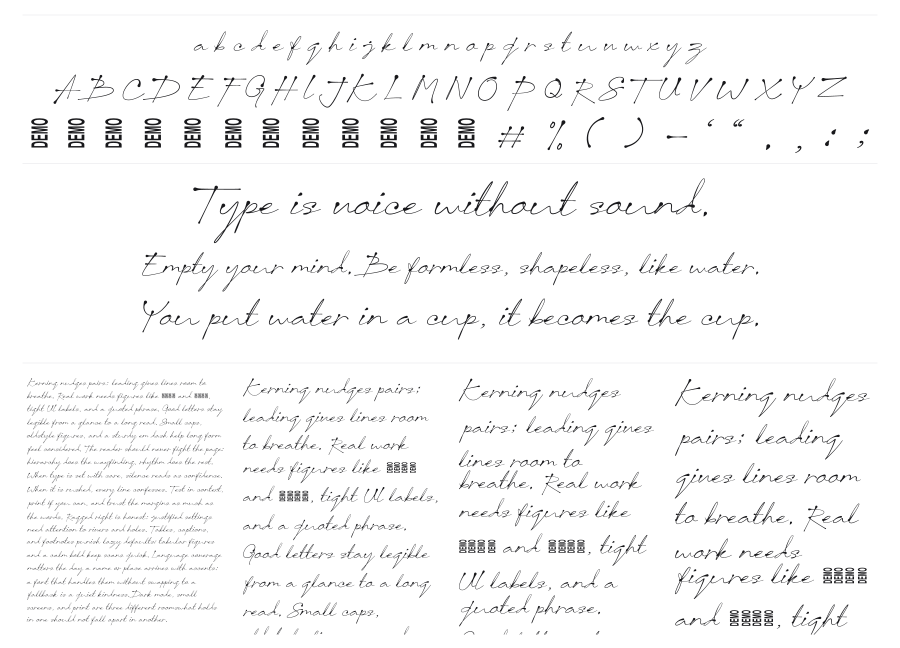 a b c d e f g h i j k l m n o p q r s t u v w x y z
A B C D E F G H I J K L M N O P Q R S T U V W X Y Z
DEMO DEMO DEMO DEMO DEMO DEMO DEMO DEMO DEMO DEMO DEMO DEMO # % ( ) – ‘ “ . , : ;
Type is voice without sound.
Empty your mind. Be formless, shapeless, like water.
You put water in a cup, it becomes the cup.
Kerning nudges pairs; leading gives lines room to
breathe. Real work needs figures like DEMO DEMO DEMO DEMO and DEMO DEMO DEMO DEMO,
tight UI labels, and a quoted phrase. Good letters stay
legible from a glance to a long read. Small caps,
oldstyle figures, and a sturdy em dash help long form
feel considered. The reader should never fight the page;
hierarchy does the wayfinding, rhythm does the rest.
When type is set with care, silence reads as confidence.
When it is rushed, every line confesses. Test in context,
print if you can, and trust the margins as much as
the words. Ragged right is honest; justified settings
need attention to rivers and holes. Tables, captions,
and footnotes punish lazy defaults; tabular figures
and a calm bold keep scans quick. Language coverage
matters the day a name or place arrives with accents;
a font that handles them without swapping to a
fallback is a quiet kindness. Dark mode, small
screens, and print are three different rooms; what holds
in one should not fall apart in another.
Kerning nudges pairs;
leading gives lines room
to breathe. Real work
needs figures like DEMO DEMO DEMO DEMO
and DEMO DEMO DEMO DEMO, tight UI labels,
and a quoted phrase.
Good letters stay legible
from a glance to a long
read. Small caps,
Kerning nudges
pairs; leading gives
lines room to
breathe. Real work
needs figures like
DEMO DEMO DEMO DEMO and DEMO DEMO DEMO DEMO, tight
UI labels, and a
quoted phrase.
Kerning nudges
pairs; leading
gives lines room
to breathe. Real
work needs
figures like DEMO DEMO DEMO DEMO
and DEMO DEMO DEMO DEMO, tight